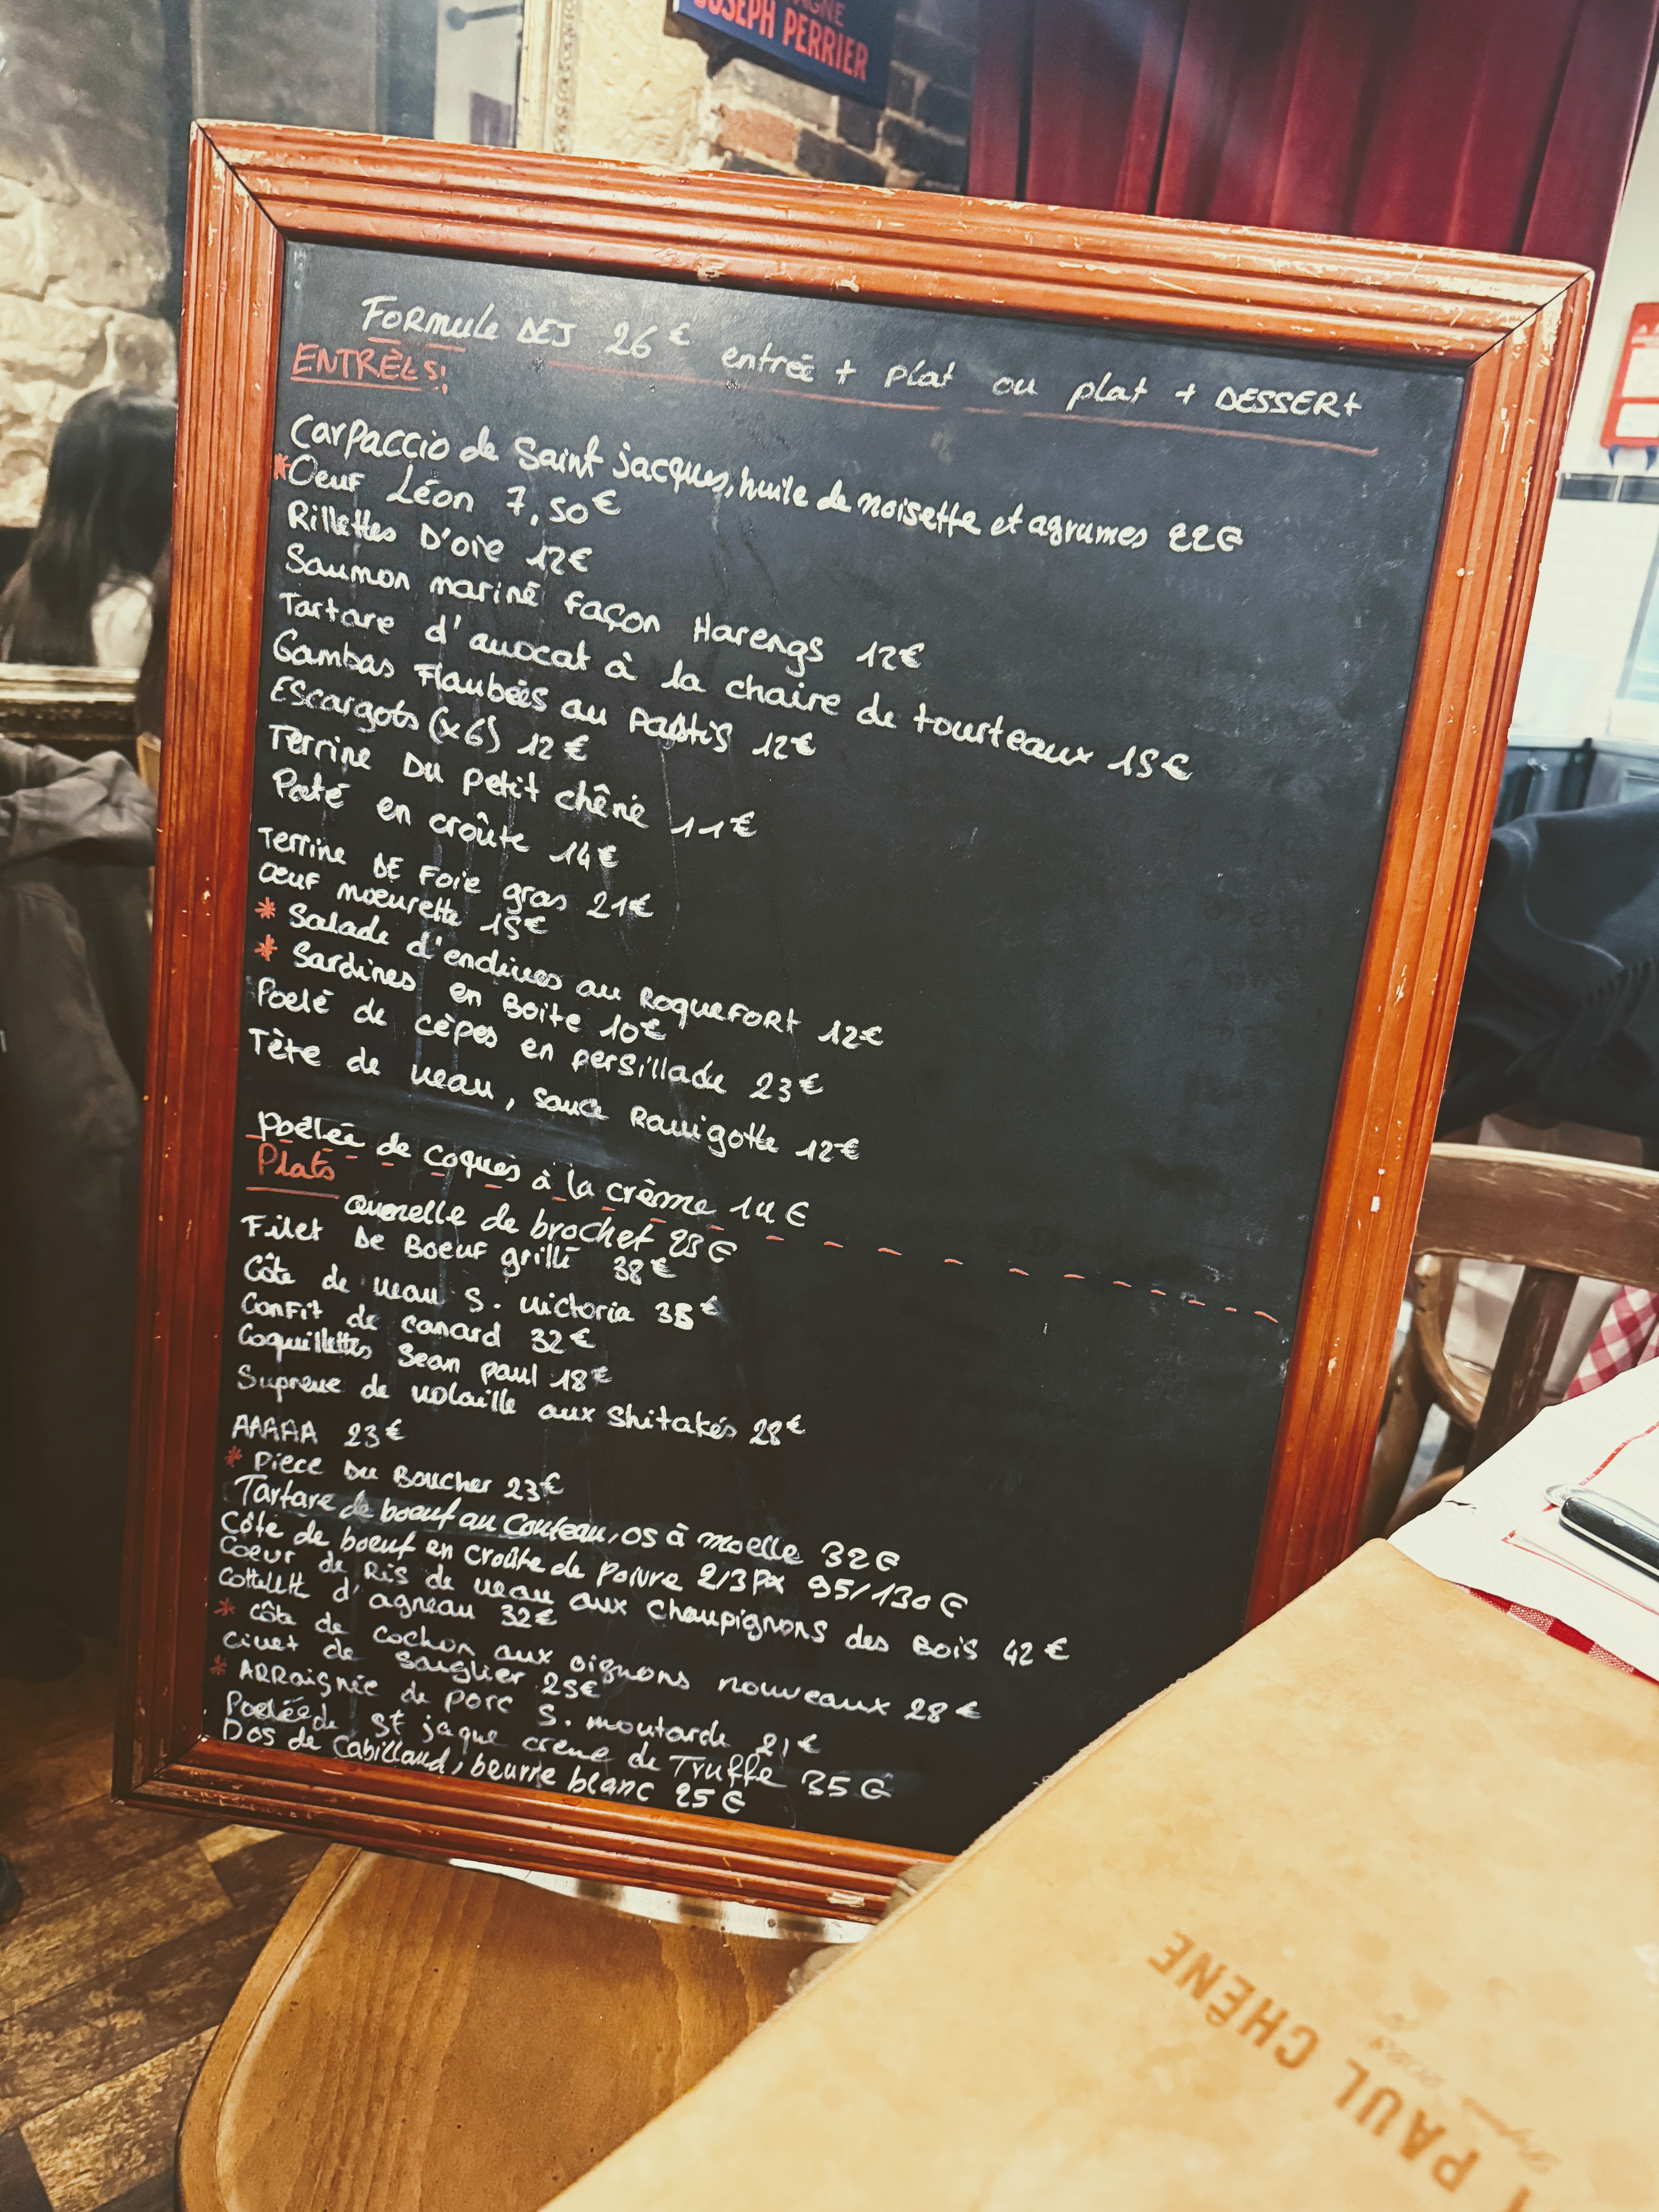 AGNE
JOSEPH PERRIER
FORMule DEJ 26€ entrée + plat ou plat + DESSERt
ENTRÈES:
Carpaccio de Saint jacques, huile de noisette et agrumes 22€
*Oeuf Léon 7,50€
Rillettes D'oie 12€
Saumon mariné façon Harengs 12€
Tartare d'avocat à la chaire de tourteaux 15€
Gambas Flambées au Pastis 12€
Escargots (x6) 12€
Terrine Du petit chêne 11€
Paté en croûte 14€
Terrine DE Foie gras 21€
Oeuf mœurette 15€
* Salade d'endives au ROQUEFORt 12€
* Sardines en Boite 10€
Poelé de cèpes en persillade 23€
Tète de veau, sauce Ravigotte 12€
Poêlée de coques à la crème 14€
Plats
quenelle de brochet 23€
Filet De Boeuf grillé 38€
Côte de veau S. victoria 35€
Confit de canard 32€
Coquillettes Jean paul 18€
Supreme de volaille aux Shitakés 28€
AAAAA 23€
* Piece Du Boucher 23€
Tartare de boeuf au Couteau, os à moelle 32€
Côte de boeuf en croûte de poivre 2/3Px 95/130€
Coeur de Ris de veau aux champignons des Bois 42€
d'agneau 32€
* Côte de cochon aux oignons nouveaux 28€
Civet de Sanglier 25€
* ARRaignée de porc S. moutarde 21€
Poelée de St jaque creme de Truffe 35€
Dos de Cabillaud, beurre blanc 25€
PAUL CHÊNE